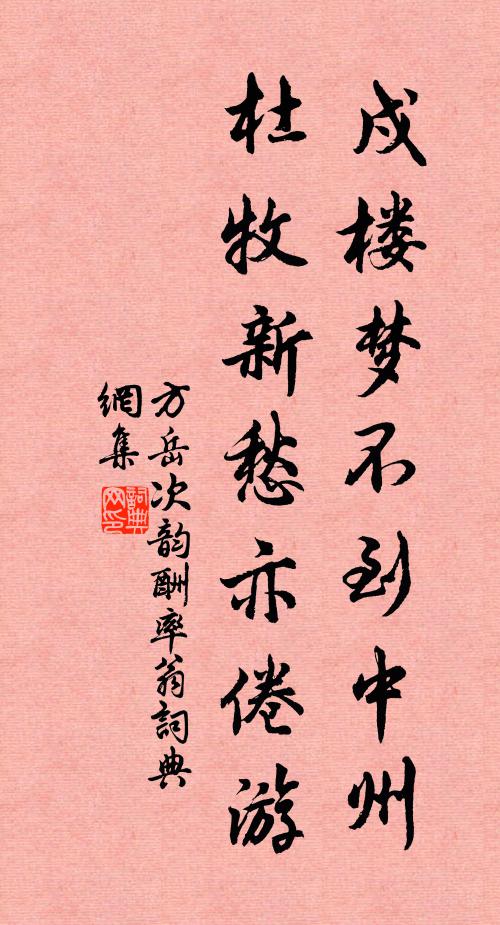 戍楼梦不到中州
杜牧新愁亦倦游
方岳次韵酬率翁詞典
網集
詞典网印